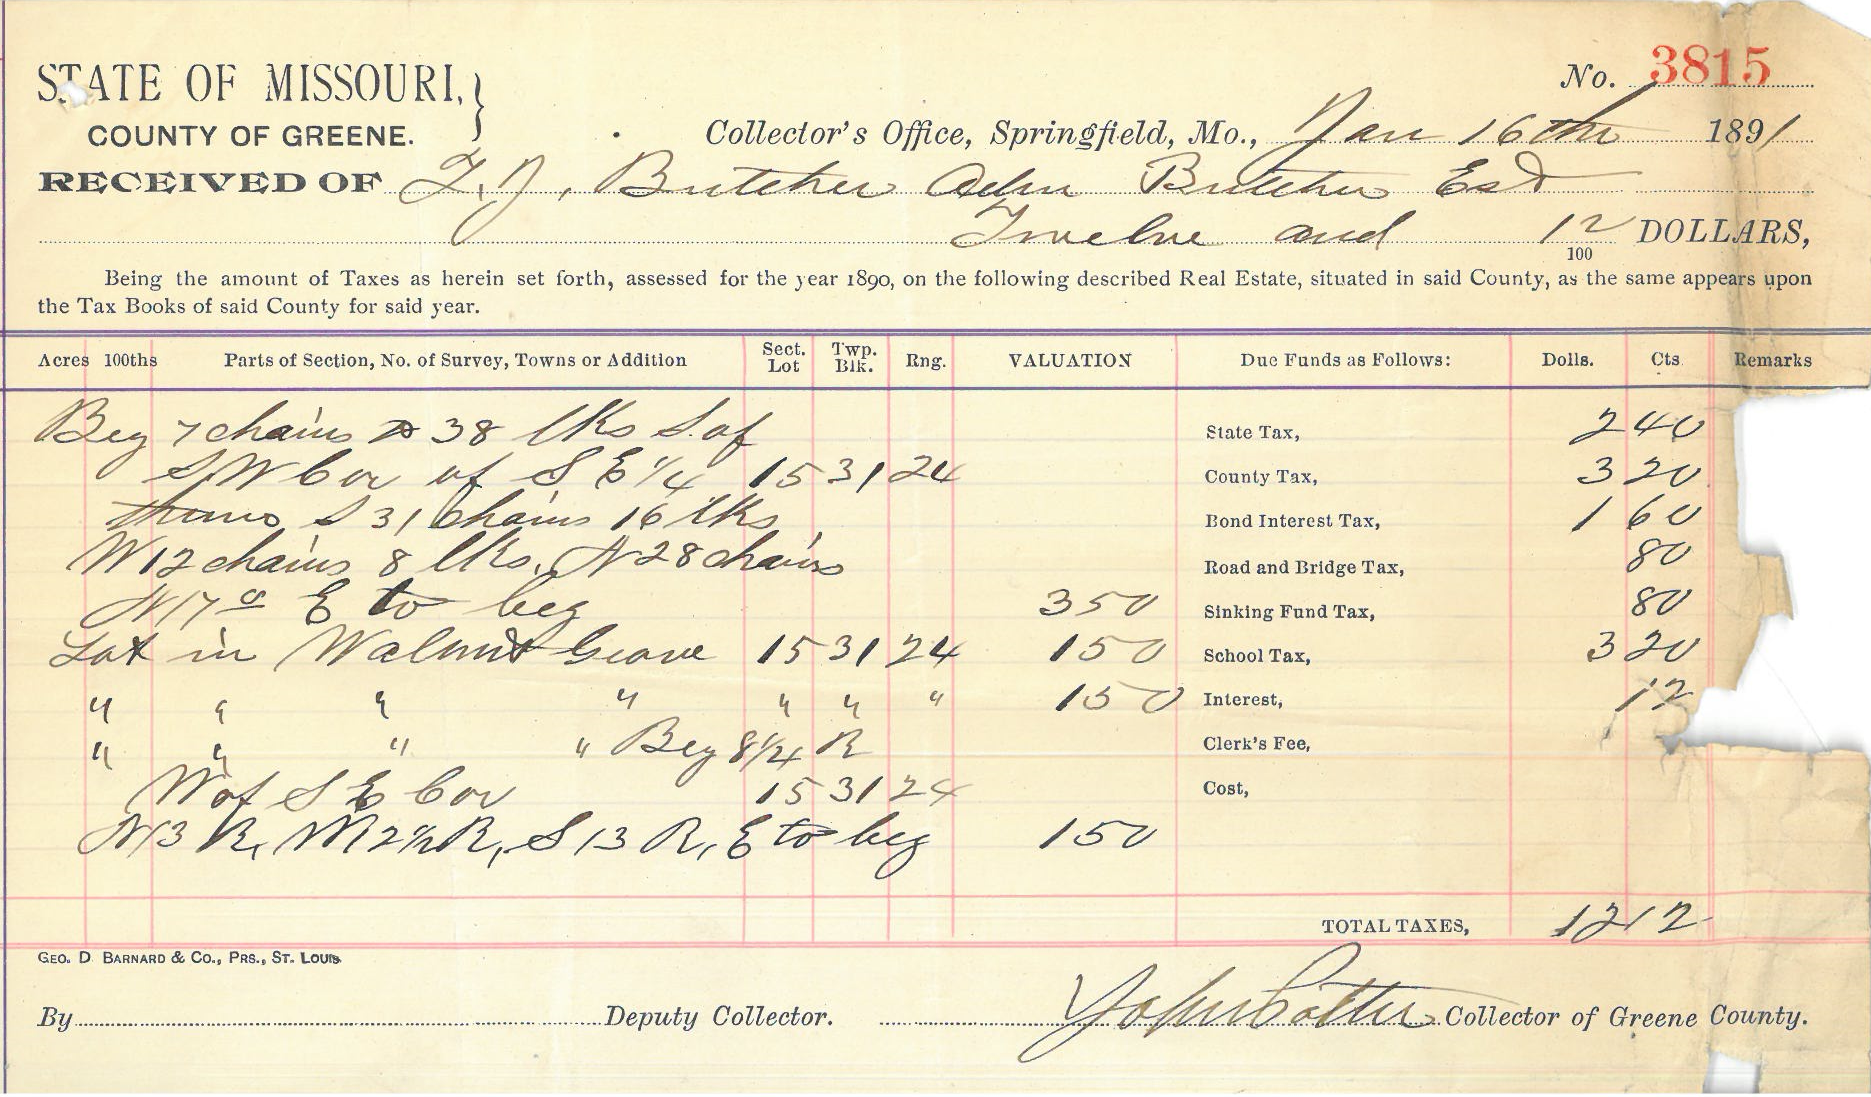 No. 3815
STATE OF MISSOURI, }
COUNTY OF GREENE.
Collector's Office, Springfield, Mo., Jan 16th 1891
RECEIVED OF T. J. Butcher Adm Butcher Est
Twelve and 12/100 DOLLARS,
Being the amount of Taxes as herein set forth, assessed for the year 1890, on the following described Real Estate, situated in said County, as the same appears upon
the Tax Books of said County for said year.
Acres 100ths Parts of Section, No. of Survey, Towns or Addition Sect. Lot Twp. Blk. Rng. VALUATION Due Funds as Follows: Dolls. Cts. Remarks
Beg 7 chains 38 lks S. of State Tax, 2 40
SW Cor of S E 1/4 15 31 24 County Tax, 3 20
S 31 chains 16 lks Bond Interest Tax, 1 60
W 12 chains 8 lks. N 28 chains Road and Bridge Tax, 80
N 17 º E to beg 350 Sinking Fund Tax, 80
Lot in Walnut Grove 15 31 24 150 School Tax, 3 20
" " " " " " " 150 Interest, 12
" " " " Beg 8 1/4 R Clerk's Fee,
W of S E Cor 15 31 24 Cost,
N 13 R, W 2 1/2 R, S 13 R, E to beg 150
TOTAL TAXES, 12 12
GEO. D BARNARD & CO., PRS., ST. LOUIS
By Deputy Collector. John Potter Collector of Greene County.